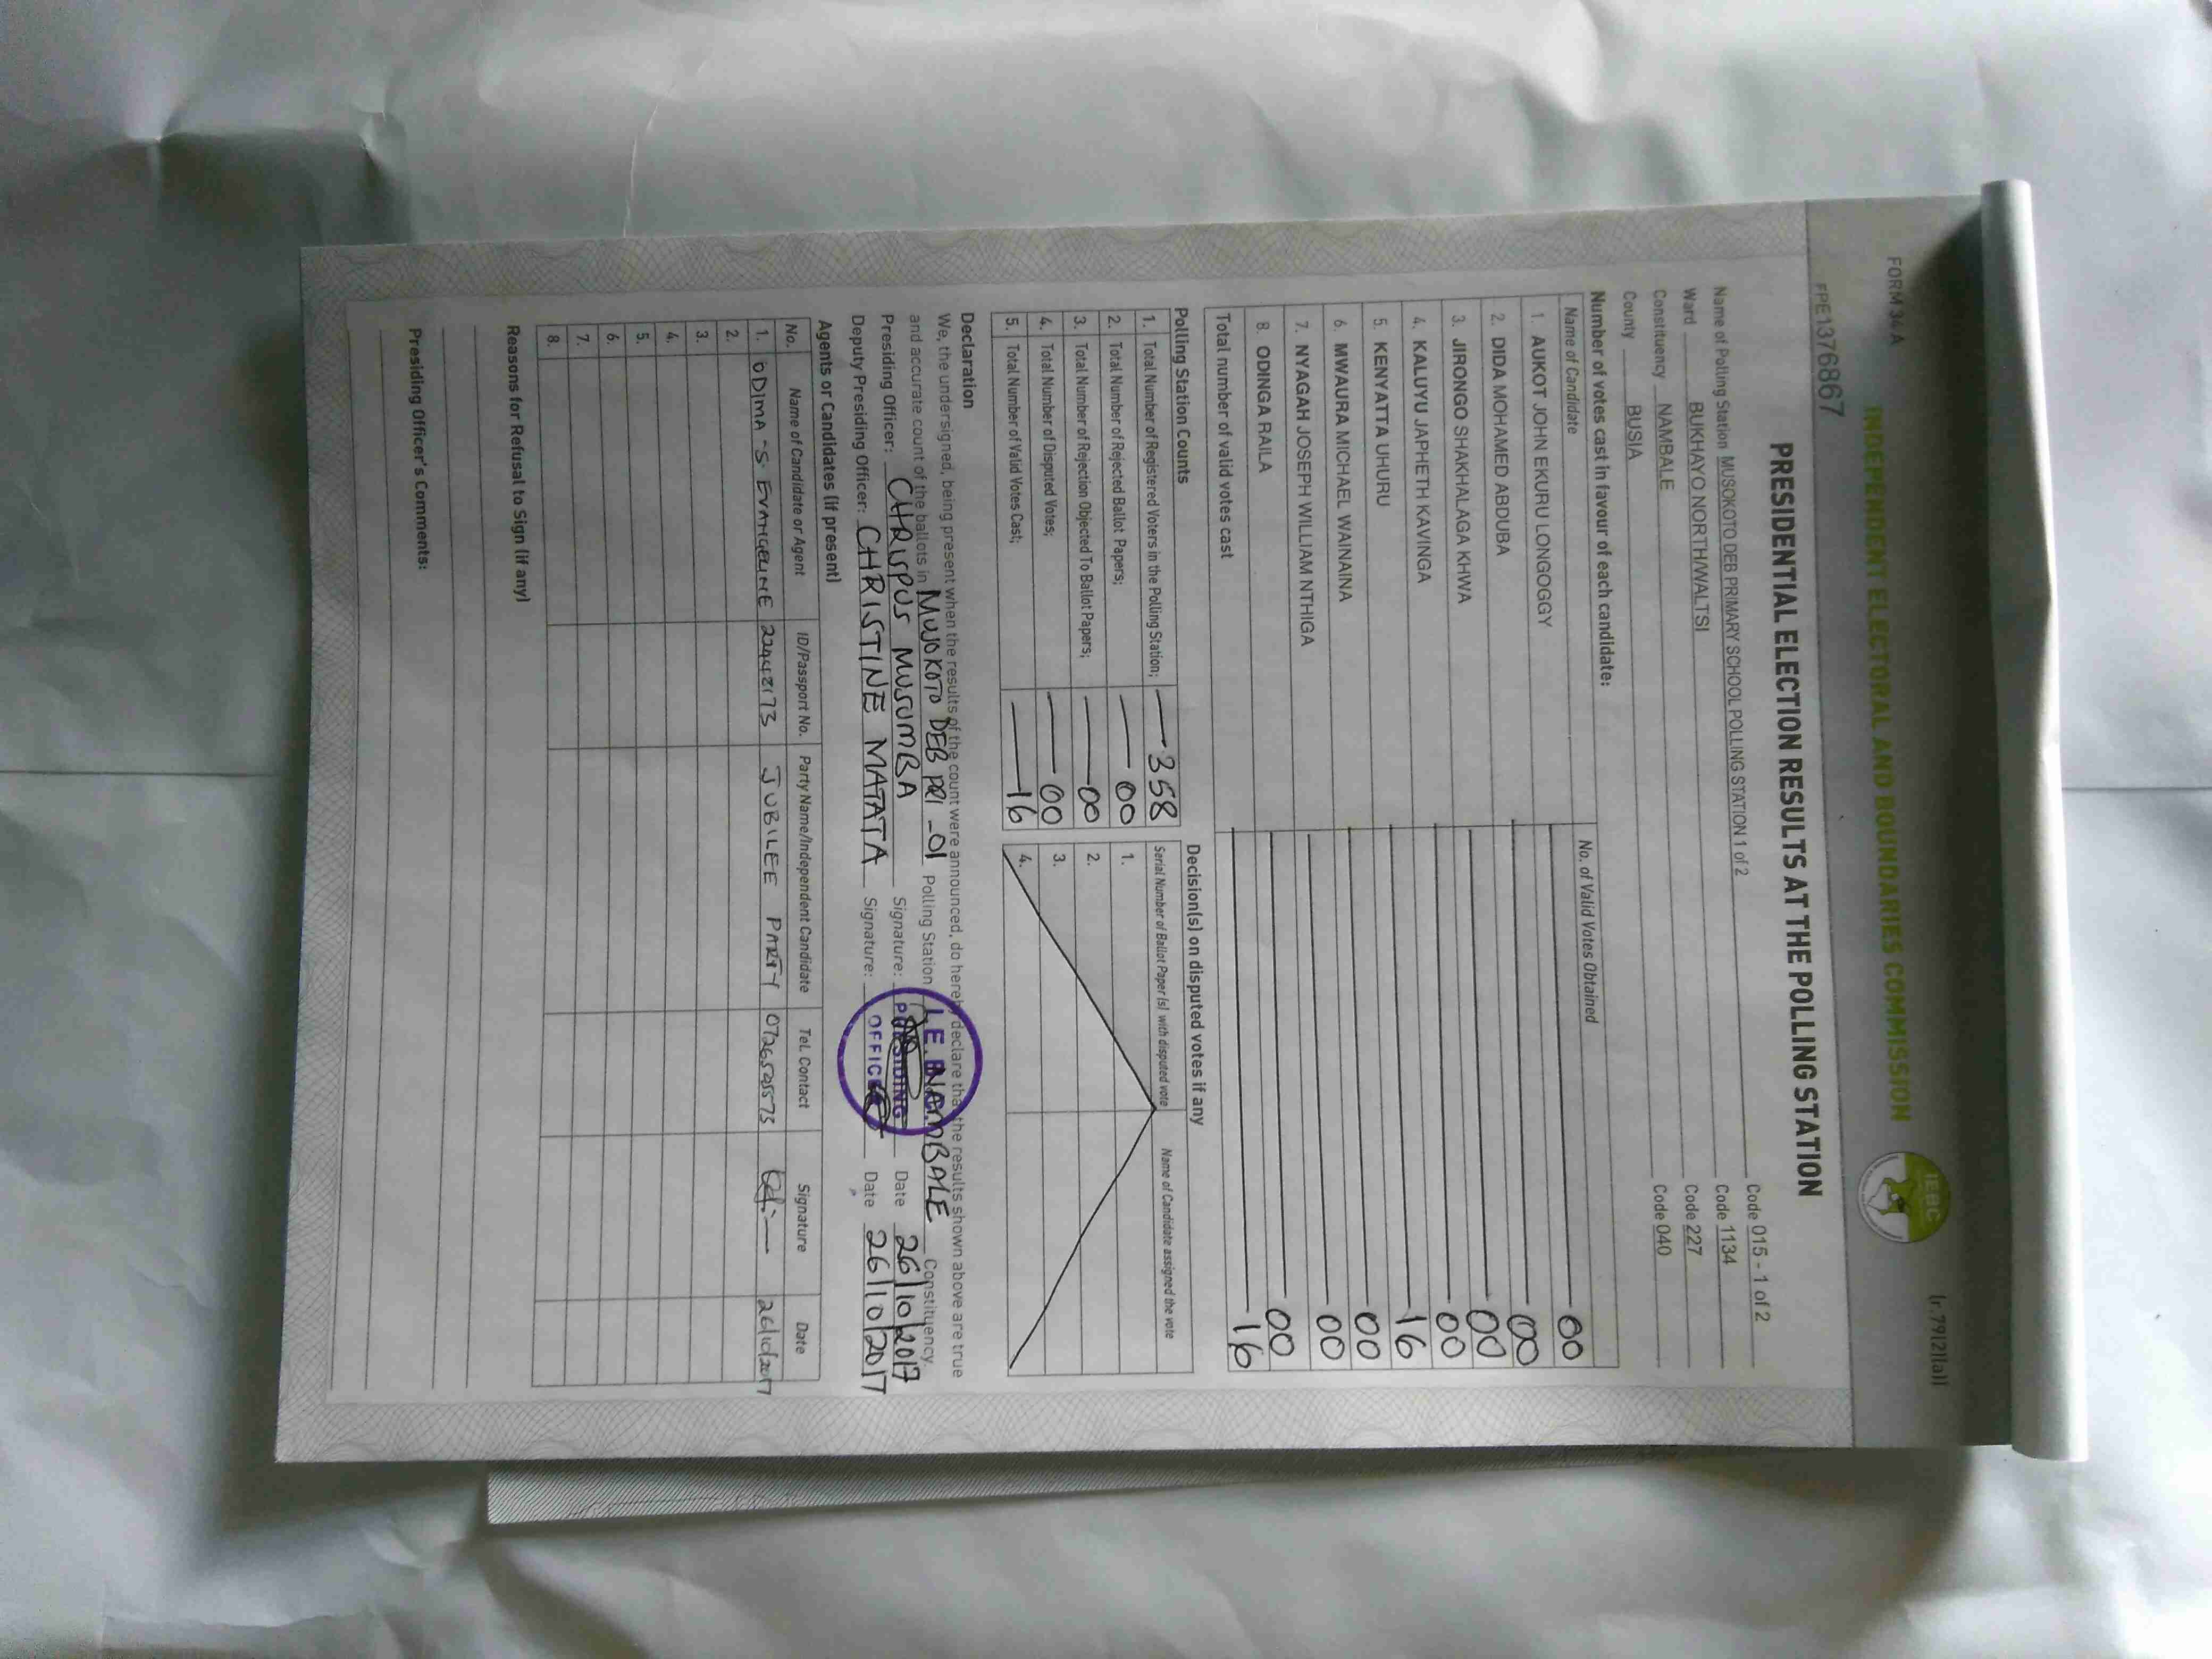 FORM 34A
(r.79(2)(a))
INDEPENDENT ELECTORAL AND BOUNDARIES COMMISSION
IEBC
FPE1376867
PRESIDENTIAL ELECTION RESULTS AT THE POLLING STATION
Name of Polling Station MUSOKOTO DEB PRIMARY SCHOOL POLLING STATION 1 of 2 Code 015 - 1 of 2
Ward BUKHAYO NORTH/WALTSI Code 1134
Constituency NAMBALE Code 227
County BUSIA Code 040
Number of votes cast in favour of each candidate:
Name of Candidate No. of Valid Votes Obtained
1. AUKOT JOHN EKURU LONGOGGY 00
2. DIDA MOHAMED ABDUBA 00
3. JIRONGO SHAKHALAGA KHWA 00
4. KALUYU JAPHETH KAVINGA 00
5. KENYATTA UHURU 16
6. MWAURA MICHAEL WAINAINA 00
7. NYAGAH JOSEPH WILLIAM NTHIGA 00
8. ODINGA RAILA 00
Total number of valid votes cast 16
Polling Station Counts
1. Total Number of Registered Voters in the Polling Station; 358
2. Total Number of Rejected Ballot Papers; 00
3. Total Number of Rejection Objected To Ballot Papers; 00
4. Total Number of Disputed Votes; 00
5. Total Number of Valid Votes Cast; 16
Decision(s) on disputed votes if any
Serial Number of Ballot Paper (s) with disputed vote Name of Candidate assigned the vote
1.
2.
3.
4.
Declaration
We, the undersigned, being present when the results of the count were announced, do hereby declare that the results shown above are true
and accurate count of the ballots in MUSOKOTO DEB PRI - 01 Polling Station NAMBALE Constituency.
Presiding Officer: CHRISPUS MUSUMBA Signature: Date 26/10/2017
Deputy Presiding Officer: CHRISTINE MATATA Signature: Date 26/10/2017
I.E.B.C.
PRESIDING
OFFICER
Agents or Candidates (if present)
No. Name of Candidate or Agent ID/Passport No. Party Name/Independent Candidate Tel. Contact Signature Date
1. ODIMA S EVANGELINE 22948173 JUBILEE PARTY 0726525573 26/10/2017
2.
3.
4.
5.
6.
7.
8.
Reasons for Refusal to Sign (if any)
Presiding Officer's Comments: